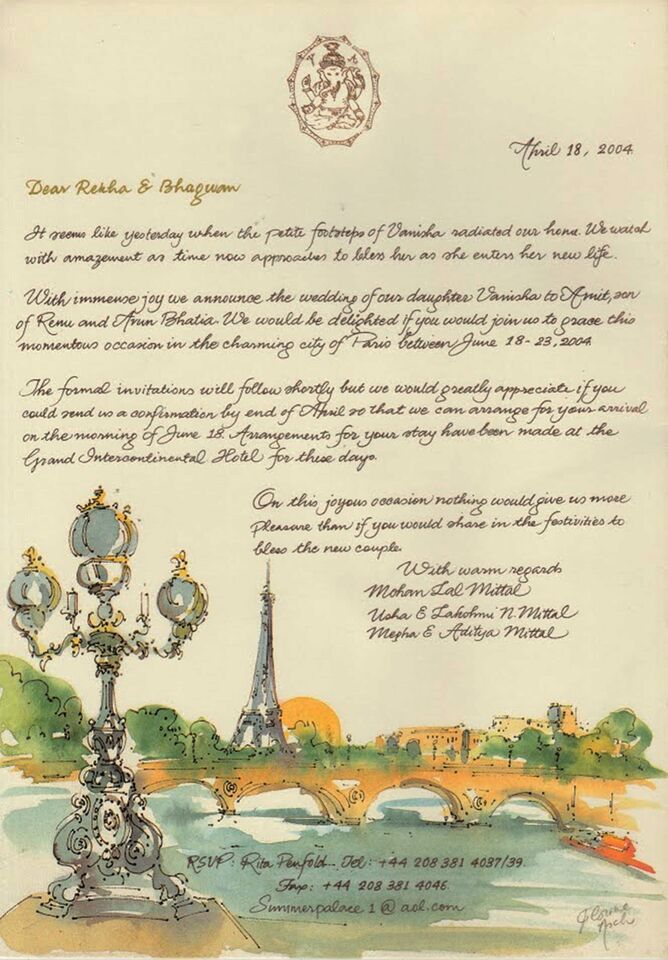 V A
April 18, 2004
Dear Rekha & Bhagwan
It seems like yesterday when the petite footsteps of Vanisha radiated our home. We watch
with amazement as time now approaches to bless her as she enters her new life.
With immense joy we announce the wedding of our daughter Vanisha to Amit, son
of Renu and Arun Bhatia. We would be delighted if you would join us to grace this
momentous occasion in the charming city of Paris between June 18-23, 2004
The formal invitations will follow shortly but we would greatly appreciate if you
could send us a confirmation by end of April so that we can arrange for your arrival
on the morning of June 18. Arrangements for your stay have been made at the
Grand Intercontinental Hotel for these days.
On this joyous occasion nothing would give us more
pleasure than if you would share in the festivities to
bless the new couple.
With warm regards
Mohan Lal Mittal
Usha & Lakshmi N. Mittal
Megha & Aditya Mittal
RSVP: Rita Penfold. Tel: +44 208 381 4037/39.
Fax: +44 208 381 4046.
Summerpalace 1 @ aol.com